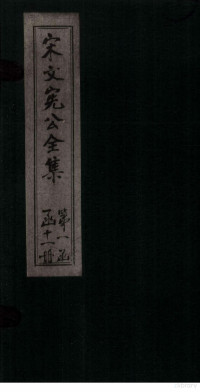 宋文宪公全集
第一函
函十一册